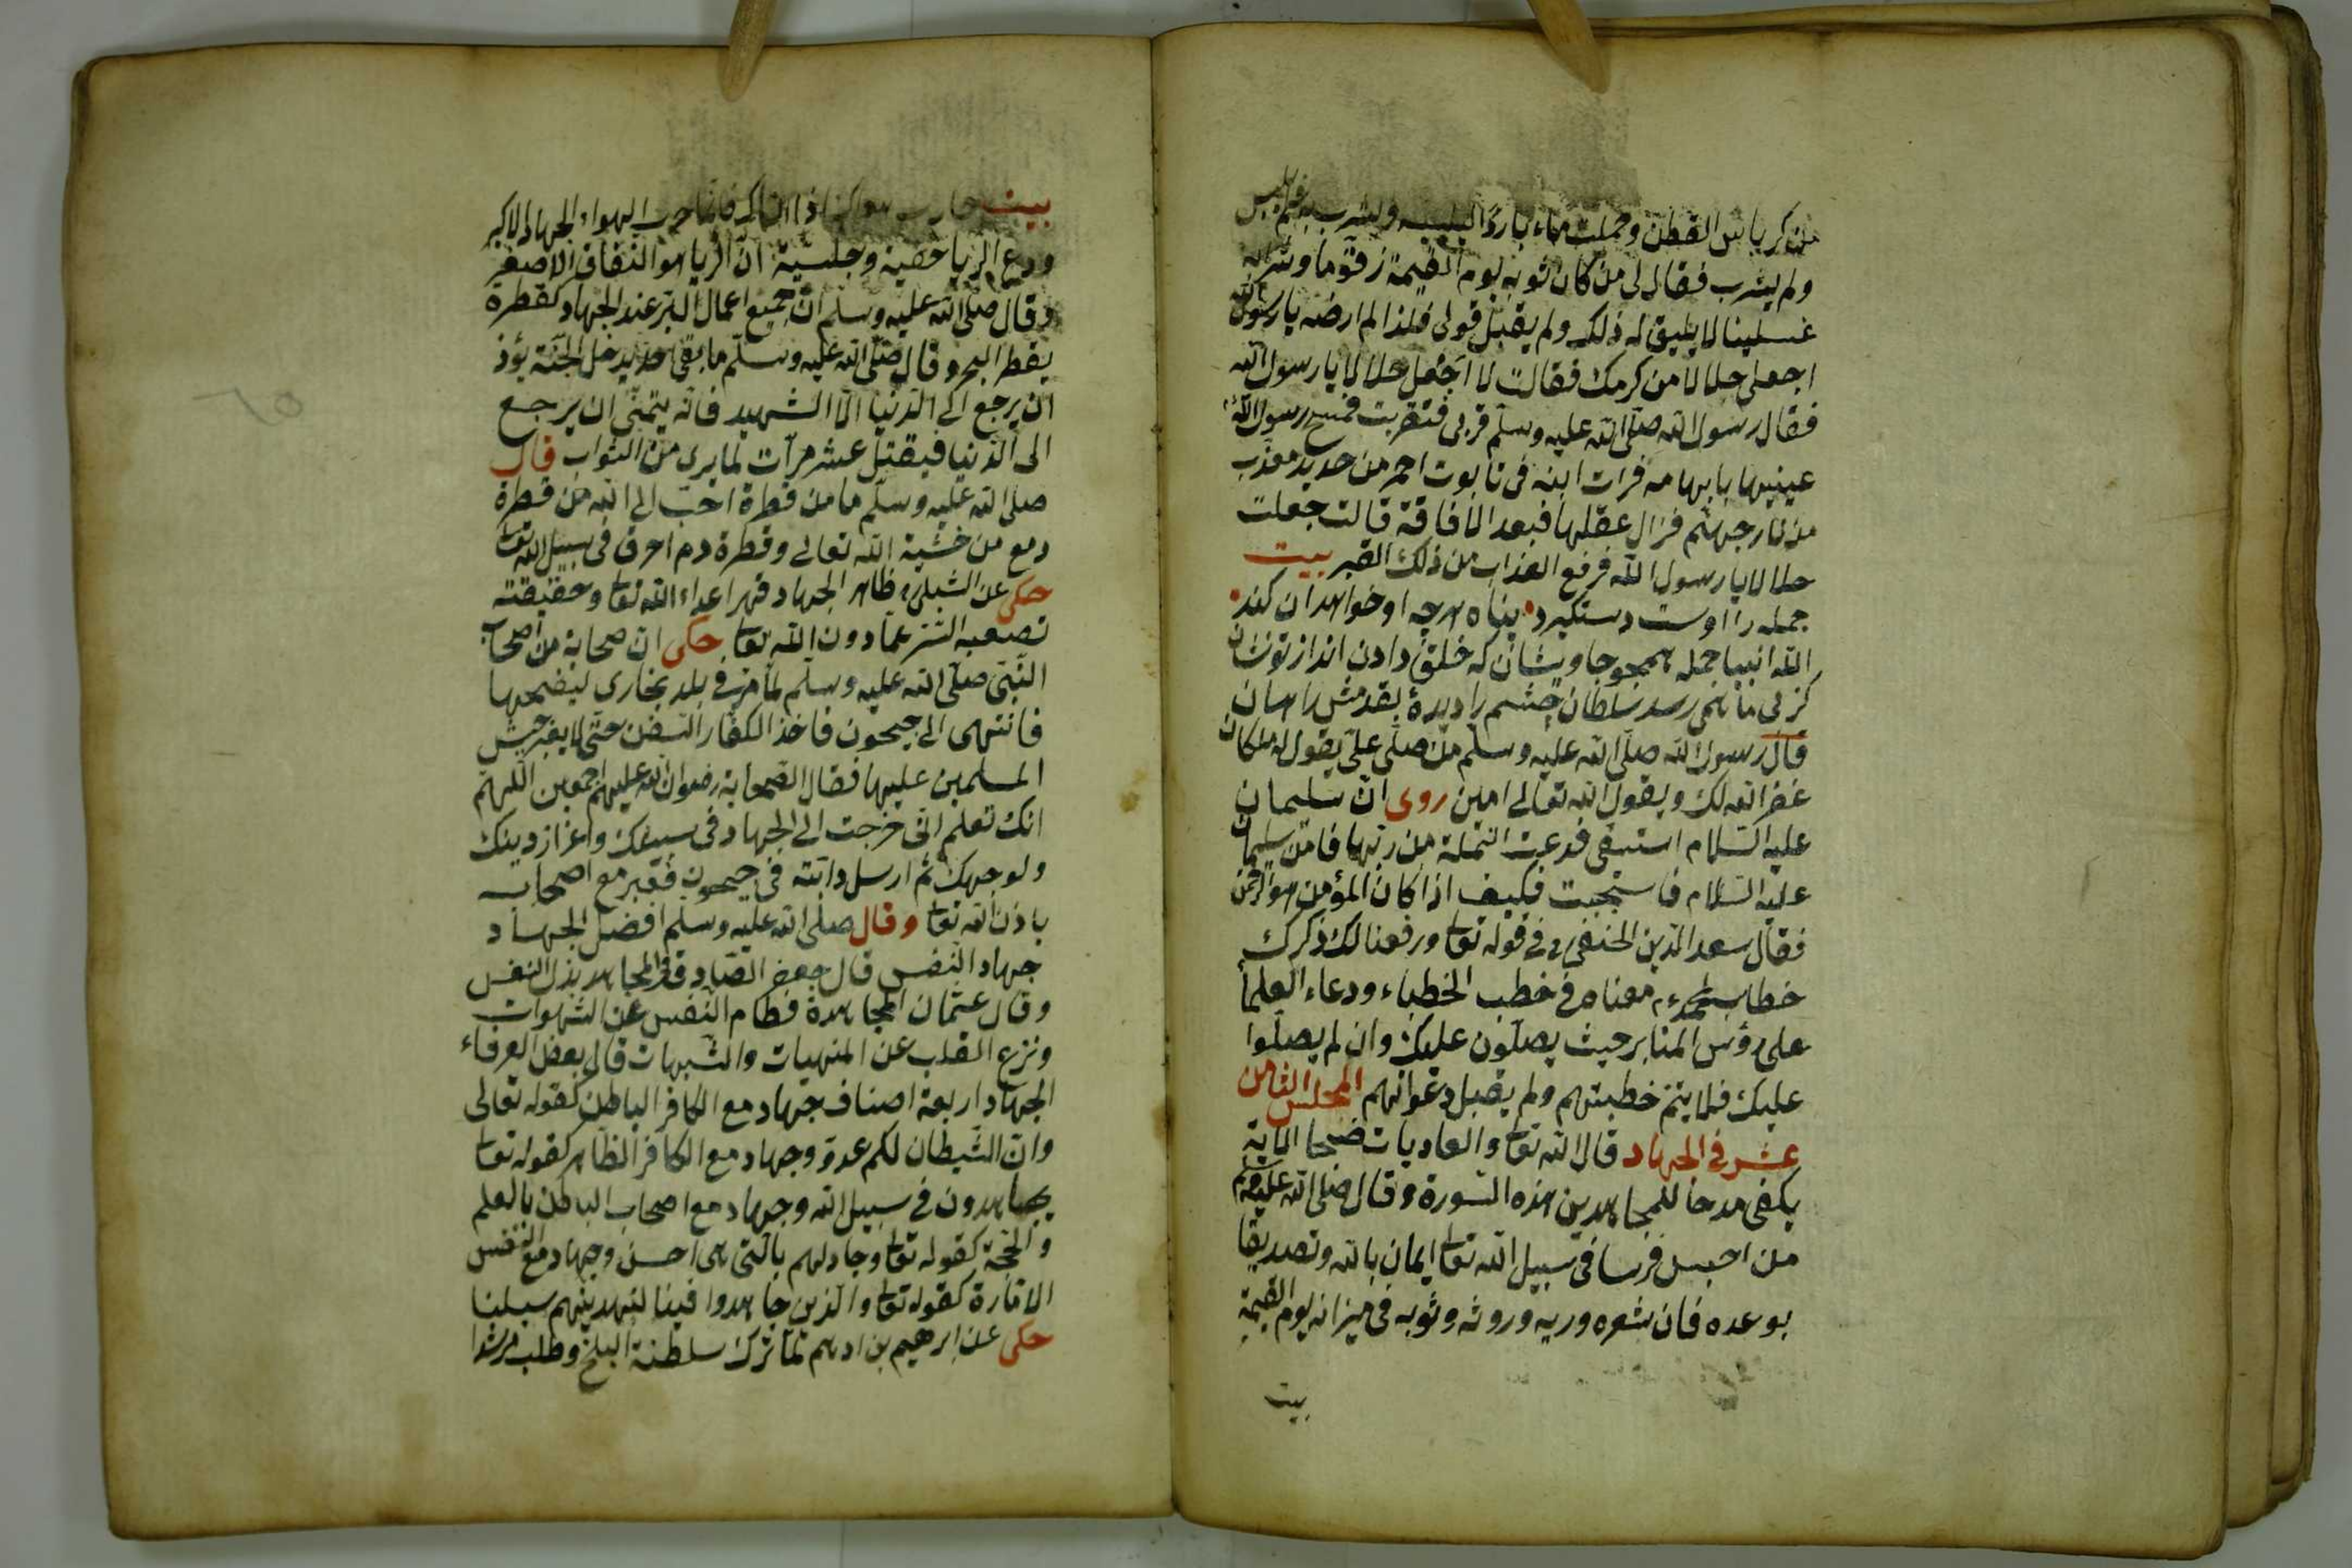 من كرباس القطن وحملت ماء باردا اليشرب فلم يلبس
ولم يشرب فقال لى من كان ثوبه يوم القيمة زقوما وشرابه
غسلينا لا يليق له ذلك ولم يقبل قولى فلذا لم ارضه يا رسول الله
اجعلى حلالا من كرمك فقالت لا اجعل حلالا يا رسول الله
فقال رسول الله صلى الله عليه وسلم قربى فتقربت فمسح رسول الله
عينيها بابهامه فرات ابنه فى تابوت احمر من حديد معذب
من نار جهنم فزال عقلها فبعد الافاقة قالت جعلت
حلالا يا رسول الله فرفع العذاب من ذلك القبر بيت
جمله را اوست دستكيرد پناه هرچه او خواهد ان كند
الله انبيا جمله همجو جاويشان كه خلق دادن انداز تونشان
كز پى ما همى رسد سلطان چشم را ديدۀ بقدمش راهسان
قال رسول الله صلى الله عليه وسلم من صلى على يقول له ملكان
غفر الله لك ويقول الله تعالى امين روى ان سليمان
عليه السلام استسقى فدعت النملة من ربها فامن سليمان
عليه السلام فاستجيبت فكيف اذا كان المؤمن هو الرحمن
فقال سعد الدين الحنفى فى قوله تعا ورفعنا لك ذكرك
خطاب لمحمد معناه فى خطب الخطباء ودعاء العلما
على رؤس المنابر حيث يصلون عليك وان لم يصلوا
عليك فلا يتم خطبتهم ولم يقبل دعوانهم المجلس الثامن
عشر فى الجهاد قال الله تعا والعاديات ضبحا الاية
يكفى مدحا للمجاهدين هذه السورة وقال صلى الله عليه وسلم
من احبس فرسا فى سبيل الله تعا ايمان بالله وتصديقا
بوعده فان شعره وريه وروثه وثوبه فى ميزانه يوم القيمة
بيت
بيت حارب هواك فانما حرب الهواء الجهاد الاكبر
ودع الريا خفية وجلية ان الريا هو النفاق الاصغر
وقال صلى الله عليه وسلم ان جميع اعمال البر عند الجهاد كقطرة
يقطر البحر وقال صلى الله عليه وسلم ما بقى احد يدخل الجنة يؤذ
ان يرجع الى الدنيا الا الشهيد فانه يتمنى ان يرجع
الى الدنيا فيقتل عشر مرآت لما يرى من الثواب قال
صلى الله عليه وسلم ما من قطرة احب الى الله من قطرة
دمع من خشية الله تعالى وقطرة دم اهرق فى سبيل الله تعا
حكى عن الشبلى ظاهر الجهاد قهر اعداء الله تعا وحقيقته
تصعبه الستر عما دون الله تعا حكى ان صحابة من اصحاب
النبى صلى الله عليه وسلم لما مر فى بلد بخارى ليفتحها
فانتهى الى جيحون فاخذ الكفار السفن حتى لا يعبر جيش
المسلمين عليها فقال الصحابة رضوان الله عليهم اجمعين اللهم
انك تعلم انى خرجت الى الجهاد فى سبيلك واعزاز دينك
ولوجهك ثم ارسل دابته فى جيحون فعبر مع اصحابه
باذن الله تعا وقال صلى الله عليه وسلم افضل الجهاد
جهاد النفس قال جعفر الصادق المجاهد بذل النفس
وقال عثمان المجاهدة فطام النفس عن الشهوات
ونزع القلب عن المنهيات والشبهات قال بعض العرفاء
الجهاد اربعة اصناف جهاد مع الكافر الباطن كقوله تعالى
وان الشيطان لكم عدو وجهاد مع الكافر الظاهر كقوله تعا
يجاهدون فى سبيل الله وجهاد مع اصحاب الباطن بالعلم
والحجة كقوله تعا وجادلهم بالتى هى احسن وجهاد مع النفس
الامارة كقوله تعا والذين جاهدوا فينا لنهدينهم سبلنا
حكى عن ابرهيم بن ادهم لما ترك سلطنة البلخ وطلب مرشدا